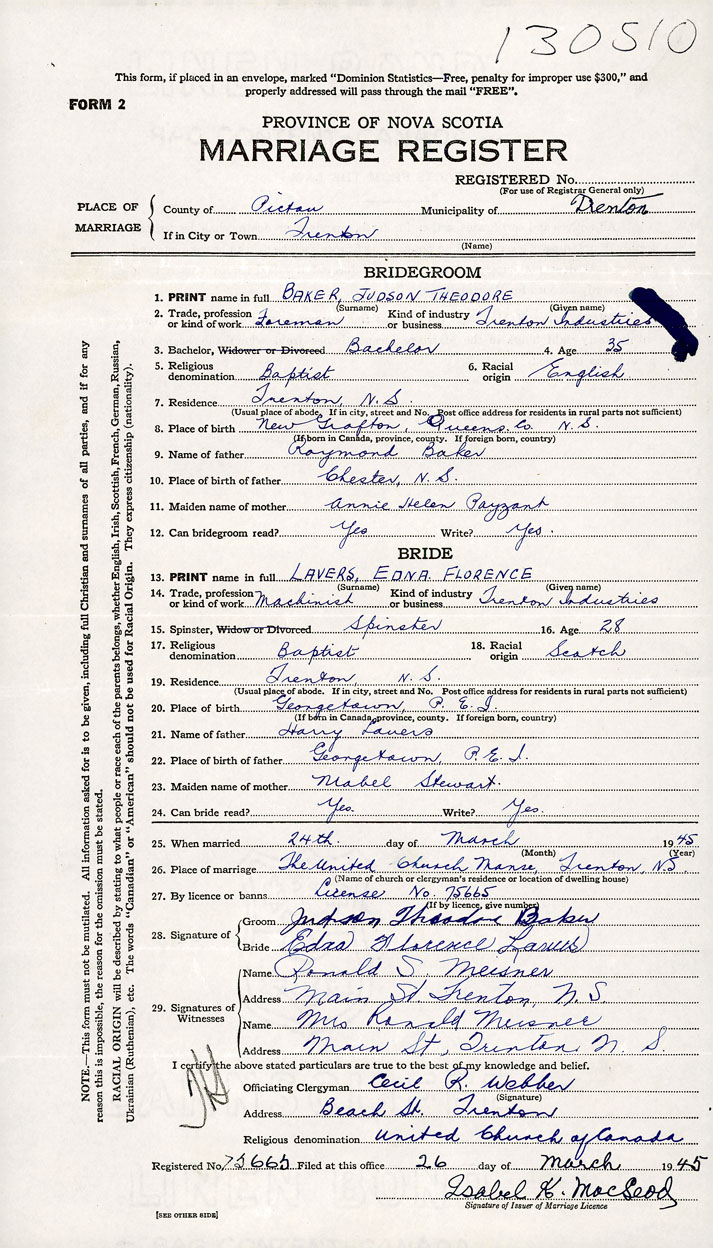 130510
This form, if placed in an envelope, marked "Dominion Statistics—Free, penalty for improper use $300," and
properly addressed will pass through the mail "FREE".
FORM 2
PROVINCE OF NOVA SCOTIA
MARRIAGE REGISTER
REGISTERED No.
(For use of Registrar General only)
PLACE OF MARRIAGE
County of Pictou Municipality of Trenton
If in City or Town Trenton
(Name)
BRIDEGROOM
1. PRINT name in full BAKER, JUDSON THEODORE
(Surname) (Given name)
2. Trade, profession or kind of work Foreman Kind of industry or business Trenton Industries
3. Bachelor, Widower or Divorced Bachelor 4. Age 35
5. Religious denomination Baptist 6. Racial origin English
7. Residence Trenton, N.S.
(Usual place of abode. If in city, street and No. Post office address for residents in rural parts not sufficient)
8. Place of birth New Grafton, Queens Co. N.S.
(If born in Canada, province, county. If foreign born, country)
9. Name of father Raymond Baker
10. Place of birth of father Chester, N.S.
11. Maiden name of mother Annie Helen Payzant
12. Can bridegroom read? Yes Write? Yes.
BRIDE
13. PRINT name in full LAVERS, EDNA FLORENCE
(Surname) (Given name)
14. Trade, profession or kind of work Machinist Kind of industry or business Trenton Industries
15. Spinster, Widow or Divorced Spinster 16. Age 28
17. Religious denomination Baptist 18. Racial origin Scotch
19. Residence Trenton N.S.
(Usual place of abode. If in city, street and No. Post office address for residents in rural parts not sufficient)
20. Place of birth Georgetown, P.E.I.
(If born in Canada, province, county. If foreign born, country)
21. Name of father Harry Lavers
22. Place of birth of father Georgetown, P.E.I.
23. Maiden name of mother Mabel Stewart.
24. Can bride read? Yes. Write? Yes.
25. When married 24th. day of March 1945
(Month) (Year)
26. Place of marriage The United Church Manse, Trenton, N.S.
(Name of church or clergyman's residence or location of dwelling house)
27. By licence or banns License No. 75665
(If by licence, give number)
28. Signature of
Groom Judson Theodore Baker
Bride Edna Florence Lavers
29. Signatures of Witnesses
Name Ronald S. Meisner
Address Main St Trenton, N.S.
Name Mrs Ronald Meisner
Address Main St, Trenton N.S.
I certify the above stated particulars are true to the best of my knowledge and belief.
Officiating Clergyman Cecil R. Webber
(Signature)
Address Beach St. Trenton
Religious denomination United Church of Canada
Registered No. 75665 Filed at this office 26 day of March 1945
Isabel K. MacLeod
Signature of Issuer of Marriage Licence
[SEE OTHER SIDE]
NOTE.—This form must not be mutilated. All information asked for is to be given, including full Christian and surnames of all parties, and if for any
reason this is impossible, the reason for the omission must be stated.
RACIAL ORIGIN will be described by stating to what people or race each of the parents belongs, whether English, Irish, Scottish, French, German, Russian,
Ukrainian (Ruthenian), etc. The words "Canadian" or "American" should not be used for Racial Origin. They express citizenship (nationality).